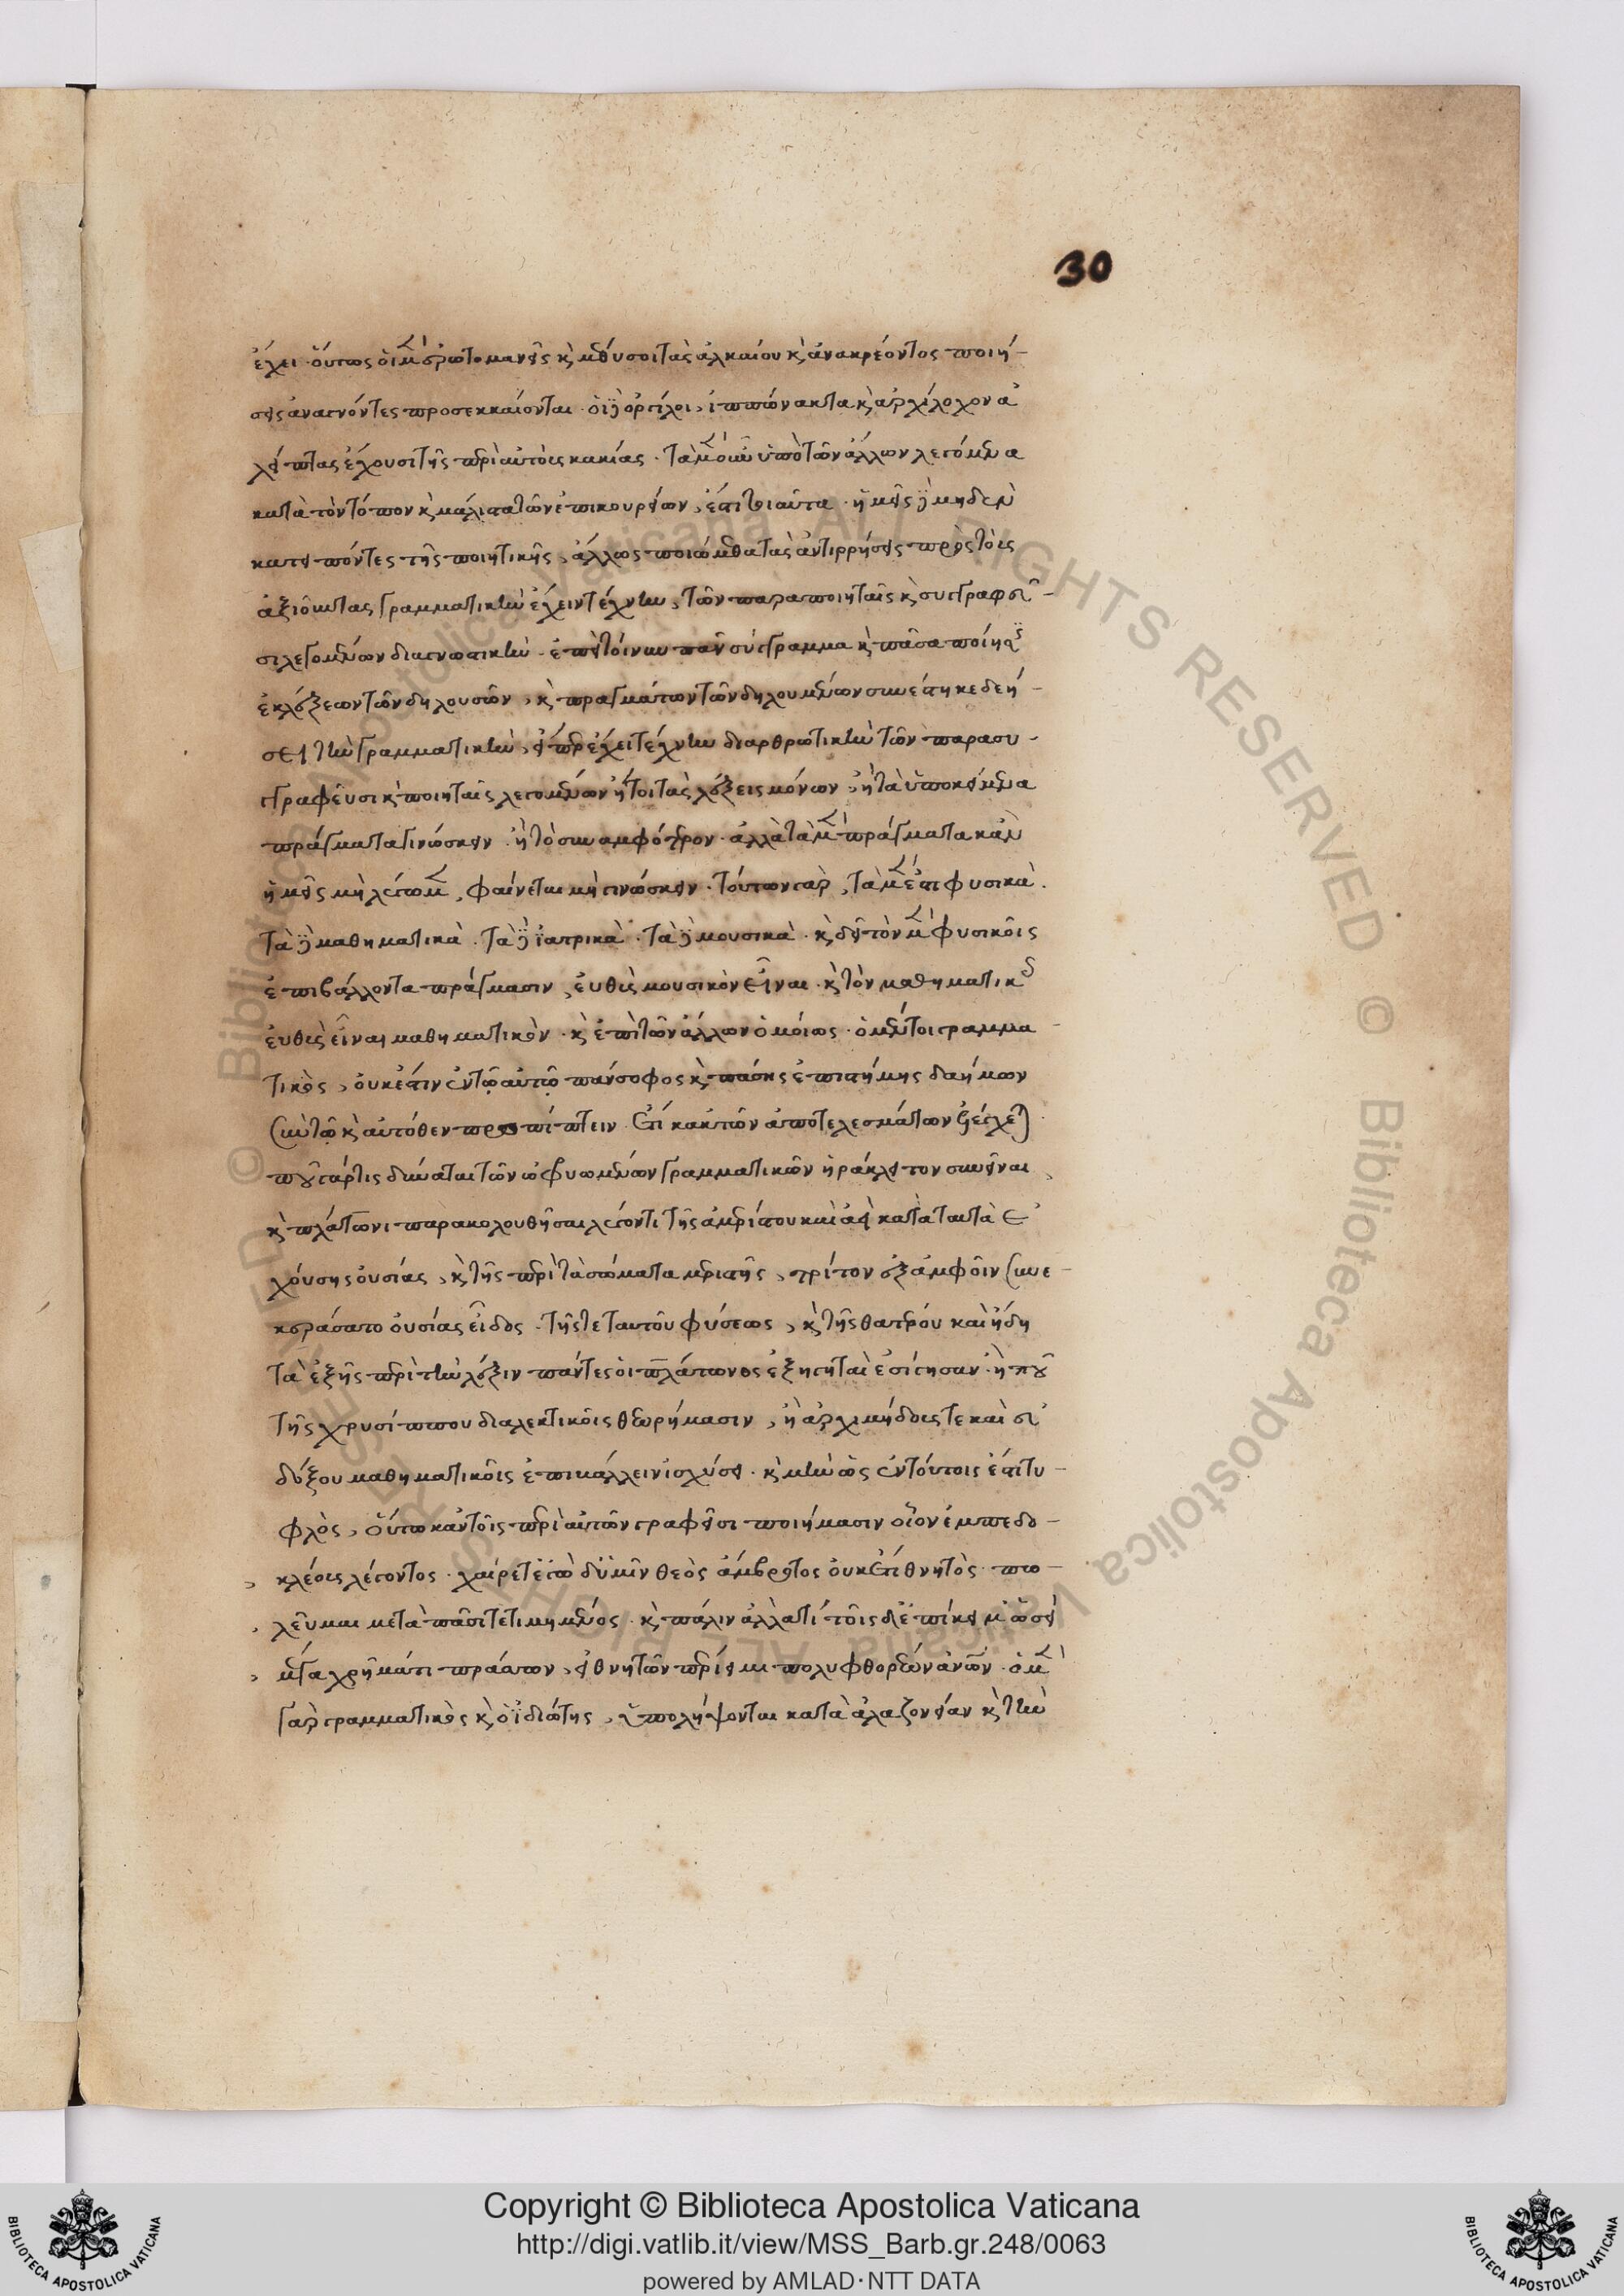 30
ἔχει· οὕτως οἱ μὲν ἐρωτομανεῖς κ μέθυσοι τὰς ἀλκαίου κ ἀνακρέοντος ποιή-
σεις ἀναγνόντες προσεκκαίονται· οἱ δὲ ὀργίλοι, ἱππώνακτα κ ἀρχίλοχον ἀ
λείπτας ἔχουσι τῆς περὶ αὐτοὺς κακίας· τὰ μὲν οὖν ὑπὸ τῶν ἄλλων λεγόμενα
κατὰ τὸν τόπον κ μάλιστα τῶν ἐπικουρείων, ἐστὶ τοιαῦτα· ἡμεῖς δὲ μηδὲν
κατειπόντες τῆς ποιητικῆς, ἄλλως ποιώμεθα τὰς ἀντιρρήσεις πρὸς τοὺς
ἀξιοῦντας γραμματικὴν ἔχειν τέχνην, τῶν παρὰ ποιηταῖς κ συγγραφεῦ-
σι λεγομένων διαγνωστικήν· ἐπεὶ τοίνυν πᾶν σύγγραμμα κ πᾶσα ποίησις
ἐκ λέξεων τῶν δηλουσῶν, κ πραγμάτων τῶν δηλουμένων συνέστηκε δεή-
σει τὴν γραμματικὴν, εἴπερ ἔχει τέχνην διαρθρωτικὴν τῶν παρὰ συ-
γγραφεῦσι κ ποιηταῖς λεγομένων ἤτοι τὰς λέξεις μόνων, ἢ τὰ ὑποκείμενα
πράγματα γινώσκειν, ἢ τὸ συναμφότερον· ἀλλὰ τὰ μὲν πράγματα κἂν
ἡμεῖς μὴ λέγωμεν, φαίνεται μὴ γινώσκειν· τούτων γὰρ, τὰ μέν ἐστι φυσικὰ.
τὰ δὲ μαθηματικὰ. τὰ δὲ ἰατρικὰ. τὰ δὲ μουσικὰ. κ δεῖ τὸν μὲν φυσικοῖς
ἐπιβάλλοντα πράγμασιν, εὐθὺς μουσικὸν εἶναι. κ τὸν μαθηματικ
εὐθὺς εἶναι μαθηματικὸν. κ ἐπὶ τῶν ἄλλων ὁμοίως. ὁ μέντοι γραμμα-
τικὸς, οὐκ ἔστιν ἐν τῷ αὐτῷ πάνσοφος κ πάσης ἐπιστήμης δαήμων
σὺν τῷ κ αὐτόθεν προσπίπτειν ἔτι κἀκ τῶν ἀποτελεσμάτων
ποῦ γάρ τις δύναται τῶν ὠφρυωμένων γραμματικῶν ἡράκλειτον συνεῖναι,
κ πλάτωνι παρακολουθῆσαι λέγοντι τῆς ἀμερίστου καὶ ἀεὶ κατὰ ταυτὰ ἐ
χούσης οὐσίας, κ τῆς περὶ τὰ σώματα μεριστῆς, τρίτον ἐξ ἀμφοῖν συνε-
κεράσατο οὐσίας εἶδος. τῆς τε ταυτοῦ φύσεως, κ τῆς θατέρου καὶ ἤδη
τὰ ἑξῆς περὶ τὴν λέξιν πάντες οἱ πλάτωνος ἐξηγηταὶ ἐσίγησαν. ἢ ποῦ
τῆς χρυσίππου διαλεκτικοῖς θεωρήμασιν, ἢ ἀρχιμήδους τε καὶ εὐ
δόξου μαθηματικοῖς ἐπιβάλλειν ἰσχύσει. κ μὴν ὡς ἐν τούτοις ἐστὶ τυ-
φλὸς, οὕτω κἂν τοῖς περὶ αὐτῶν γραφεῖσι ποιήμασιν οἷον ἐμπεδο-
κλέους λέγοντος. χαίρετ' ἐγὼ δ' ὑμῖν θεὸς ἄμβροτος οὐκέτι θνητὸς πω-
λεῦμαι μετὰ πᾶσι τετιμημένος. κ πάλιν ἀλλὰ τί τοῖς δ' ἐπίκειμ' ὡσεὶ
μέγα χρῆμά τι πράσσων, εἰ θνητῶν περίειμι πολυφθορέων ἀνῶν. ὁ μὲν
γὰρ γραμματικὸς κ ὁ ἰδιώτης, ὑπολήψονται κατὰ ἀλαζονείαν κ τὴν
Copyright © Biblioteca Apostolica Vaticana
http://digi.vatlib.it/view/MSS_Barb.gr.248/0063
powered by AMLAD·NTT DATA